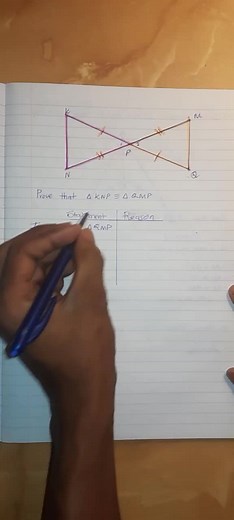 K M
P
N Q
Prove that △KNP ≡ △QMP
Statement Reason
△QMP